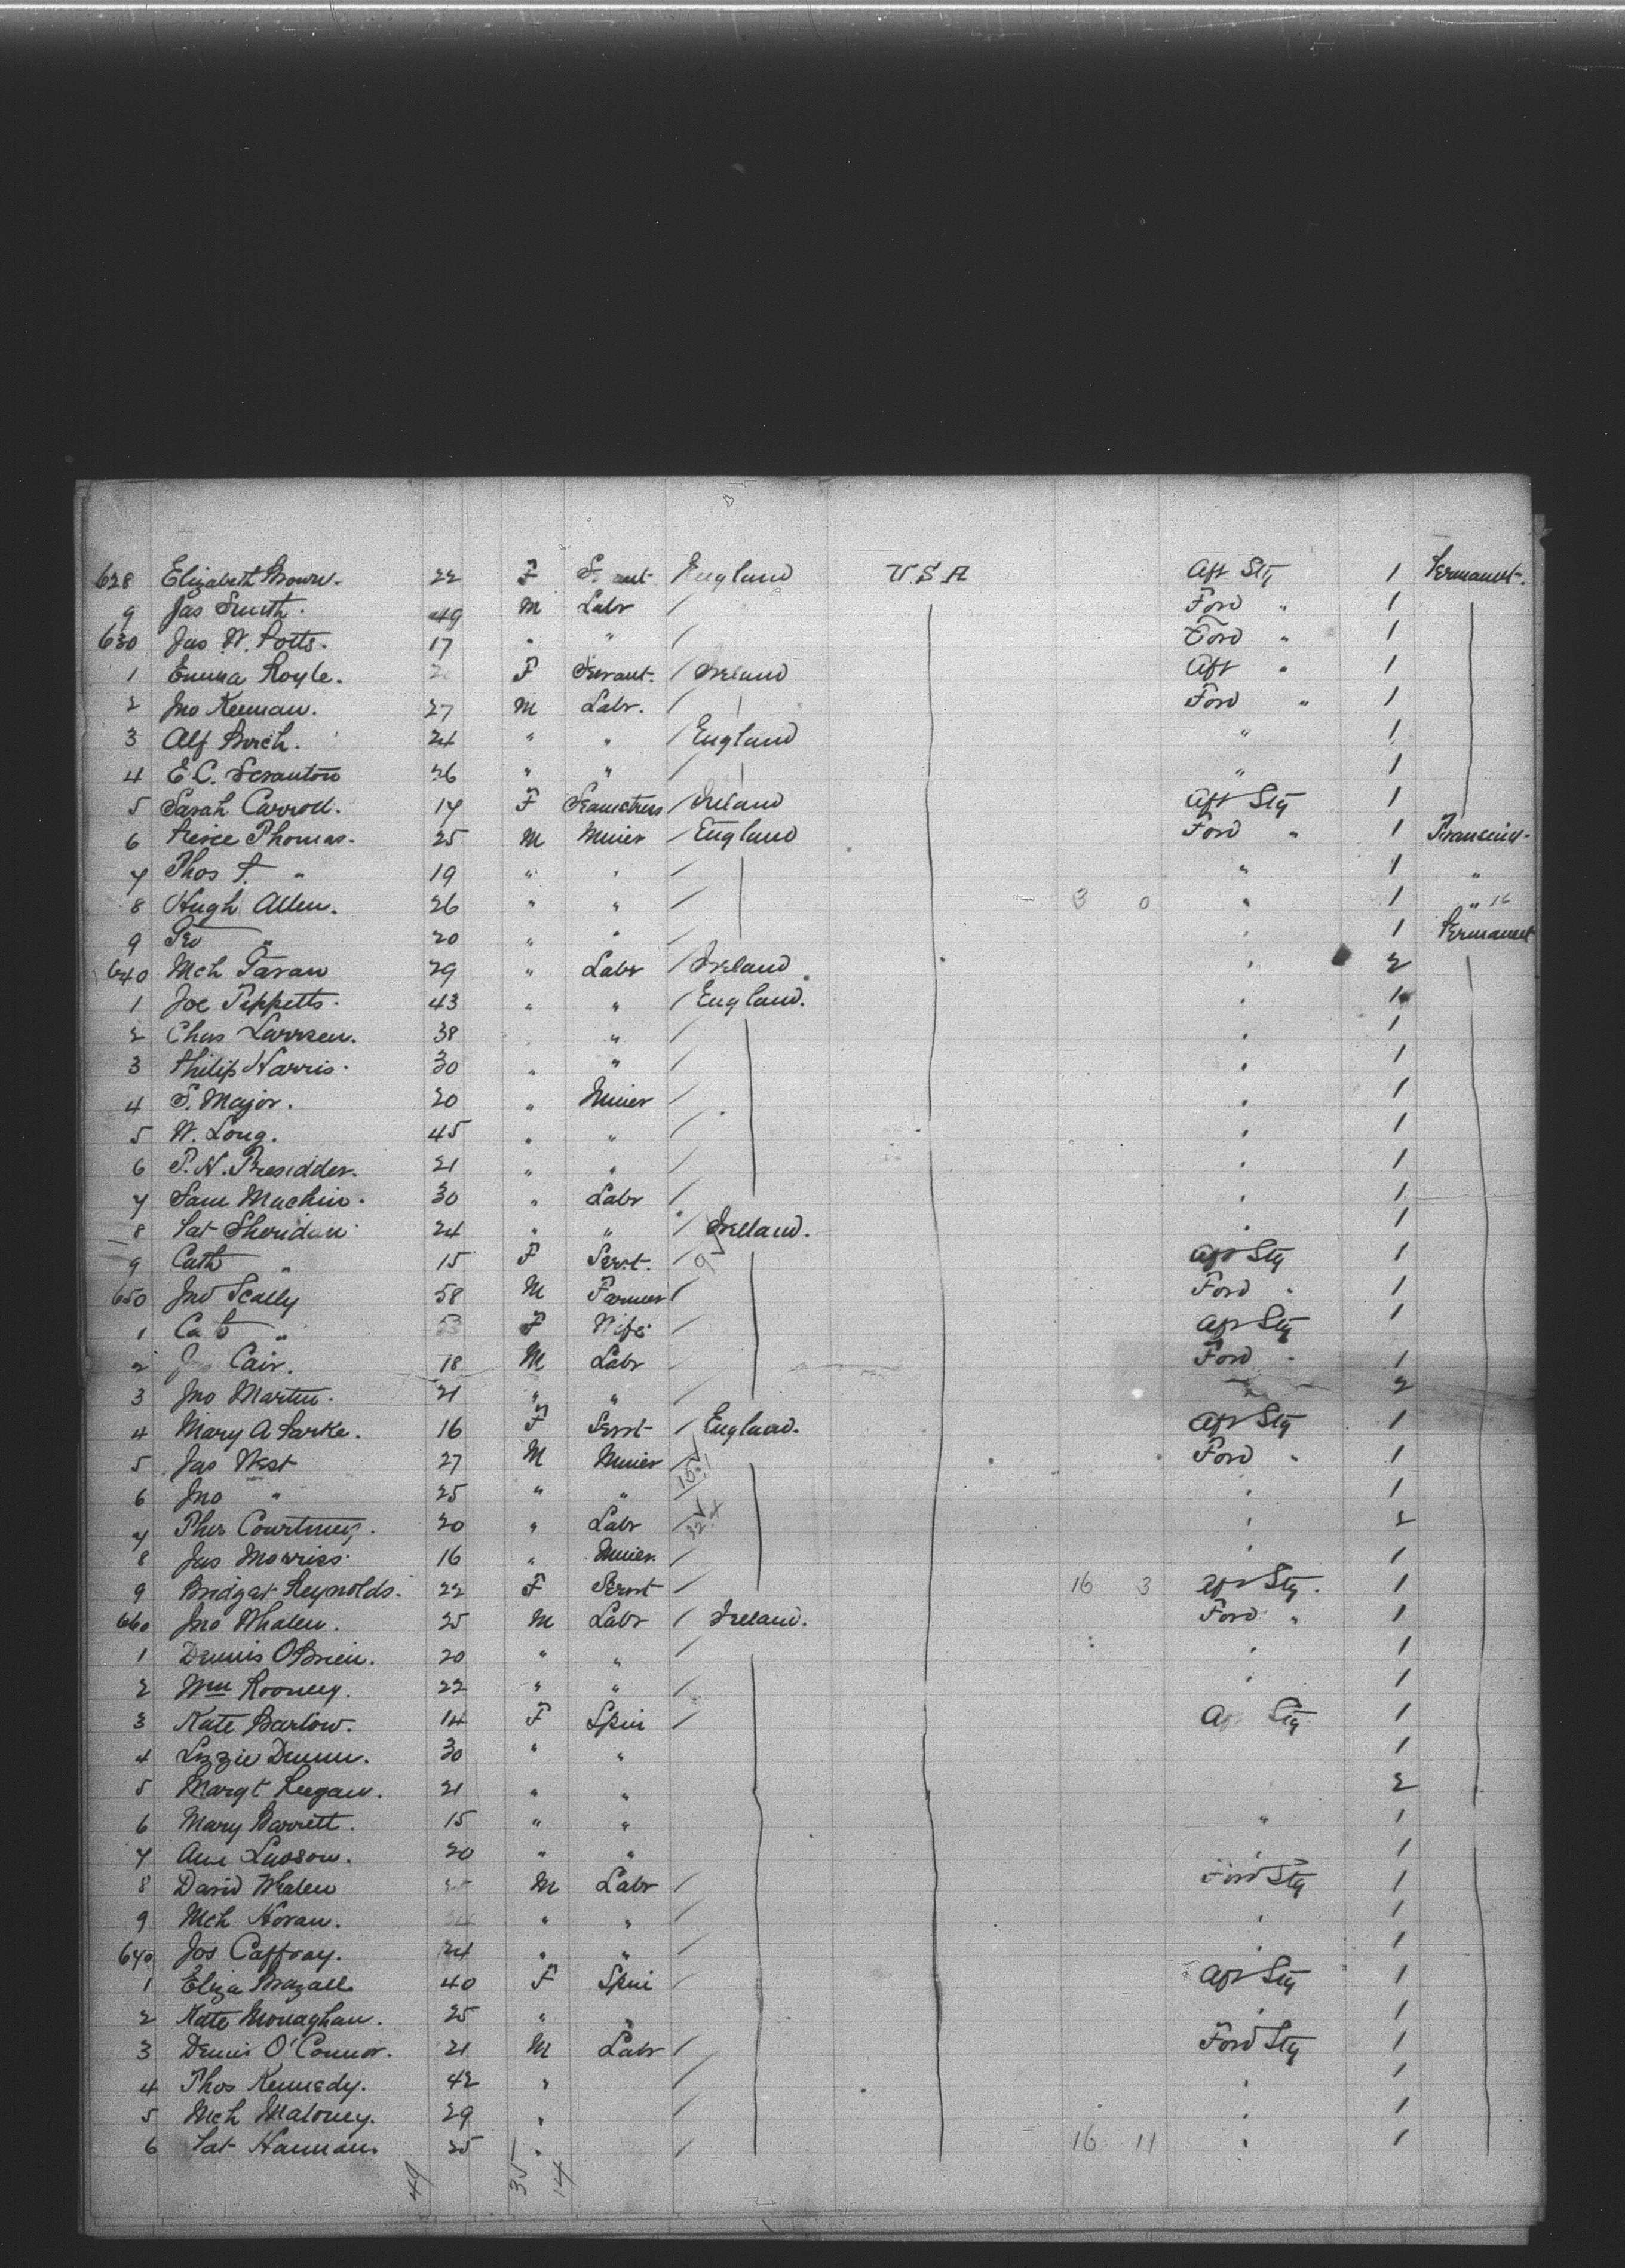 628 Elizabeth Brown. 22 F England U S A Aft Stg 1 Permanent.
9 Jas Smith. 49 M Labr / Ford " 1
630 Jas W. Potts. 17 " " / Ford " 1
1 Emma Royle. F Servant. / Ireland Aft " 1
2 Jno Keenan. 27 M Labr. / Ford " 1
3 Alf Birch. 24 " " / England " 1
4 E. C. Scranton 26 " " / " 1
5 Sarah Carroll. 17 F Seamstress / Ireland Aft Stg 1
6 Peirce Thomas. 25 M Miner / England Ford " 1
7 Thos P. " 19 " " / " 1 "
8 Hugh Allen. 26 " " / 3 0 " 1 "
9 Geo " 20 " " / " 1 Permanent
640 Mch Gavan 29 " Labr / Ireland " 2
1 Joe Tippetts. 43 " " / England. " 1
2 Chas Larrsen. 38 " " / " 1
3 Philip Harris. 30 " " / " 1
4 S. Major. 20 " Miner / " 1
5 W. Long. 45 " " / " 1
6 P. H. Presidder. 21 " " / " 1
7 Sam Machin. 30 " Labr / " 1
8 Pat Sheridan 24 " " / Ireland. " 1
9 Cath " 15 F Servt. / Aft Stg 1
650 Jno Scally 58 M Farmer / Ford " 1
1 Cath " 53 F Wife / Aft Stg 1
2 Cair. 18 M Labr / Ford " 1
3 Jno Martin. 21 " " / " 2
4 Mary A Parke. 16 F Servt / England. Aft Stg 1
5 Jas West 27 M Miner / Ford " 1
6 Jno " 25 " " " 1
7 Thos Courtney. 20 " Labr / " 2
8 Jas Morriss. 16 " Miner / " 1
9 Bridget Reynolds. 22 F Servt / 16 3 Aft Stg. 1
660 Jno Whalen. 25 M Labr / Ireland. Ford " 1
1 Dennis O'Brien. 20 " " / " 1
2 Wm Rooney. 22 " " / " 1
3 Kate Barlow. 14 F Spin / Aft Stg 1
4 Lizzie Dunn. 30 " " 1
5 Margt Keegan. 21 " " 2
6 Mary Barrett. 15 " " " 1
7 Ann Lawson. 20 " " " 1
8 David Whalen M Labr / Ford Stg 1
9 Mch Horan. " " / " 1
670 Jos Caffray. 24 " " / " 1
1 Eliza Brazall 40 F Spin / Aft Stg 1
2 Kate Monaghan. 25 " " " 1
3 Dennis O'Connor. 21 M Labr / Ford Stg 1
4 Thos Kennedy. 42 " / " 1
5 Mch Maloney. 29 " / " 1
6 Pat Hannan. 25 " / 16 11 " 1
49 35 14